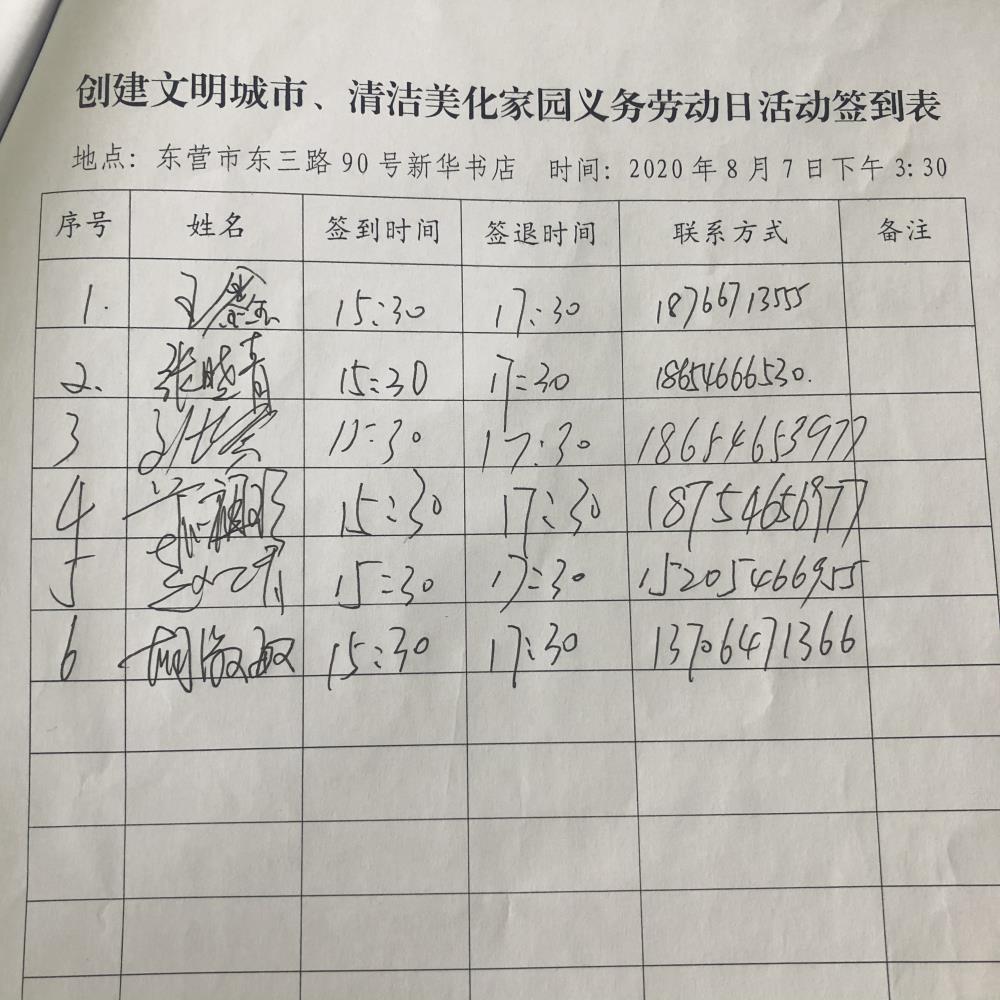 创建文明城市、清洁美化家园义务劳动日活动签到表
地点：东营市东三路90号新华书店 时间：2020年8月7日下午3:30
序号 姓名 签到时间 签退时间 联系方式 备注
1. 15:30 17:30 18766713555
2. 张晓青 15:30 17:30 18654666530.
3 15:30 17:30 18654653977
4 15:30 17:30
5 15:30 17:30 15205466955
6 15:30 17:30 13706471366